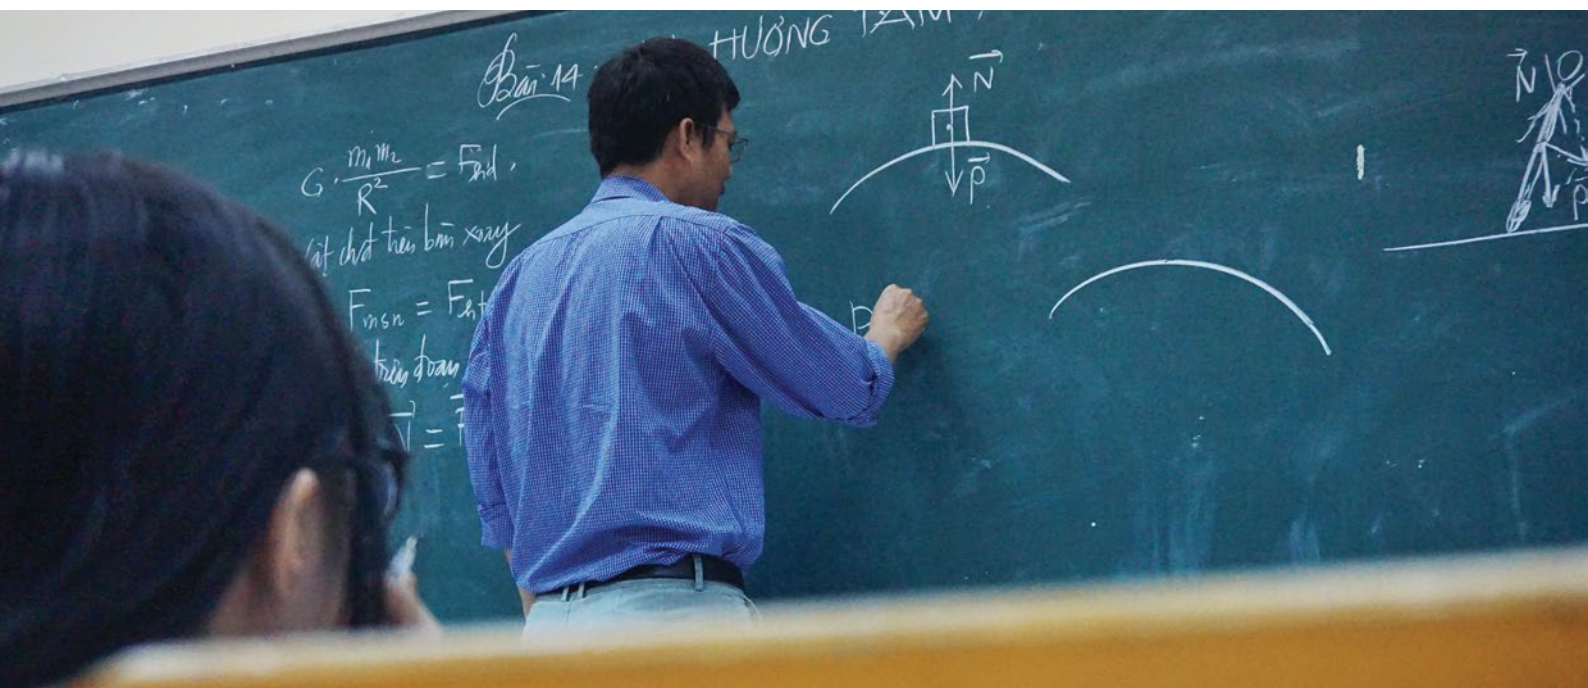 Bài 14 HƯỚNG TÂM
G. m₁m₂ / R² = Fhd.
chơt trên bàn xoay
Fmsn = Fht
trên đoạn
N
P
N
P
P